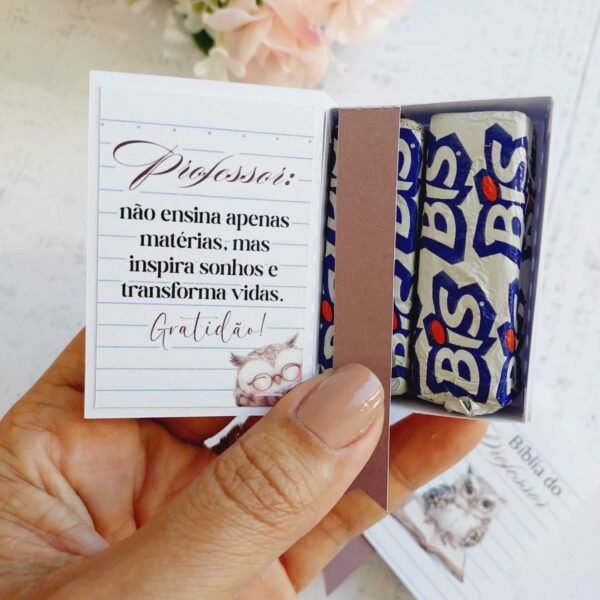 Professor:
não ensina apenas
matérias, mas
inspira sonhos e
transforma vidas.
Gratidão!
BIS
BIS
BIS
BIS
BIS
Bíblia do
Professor